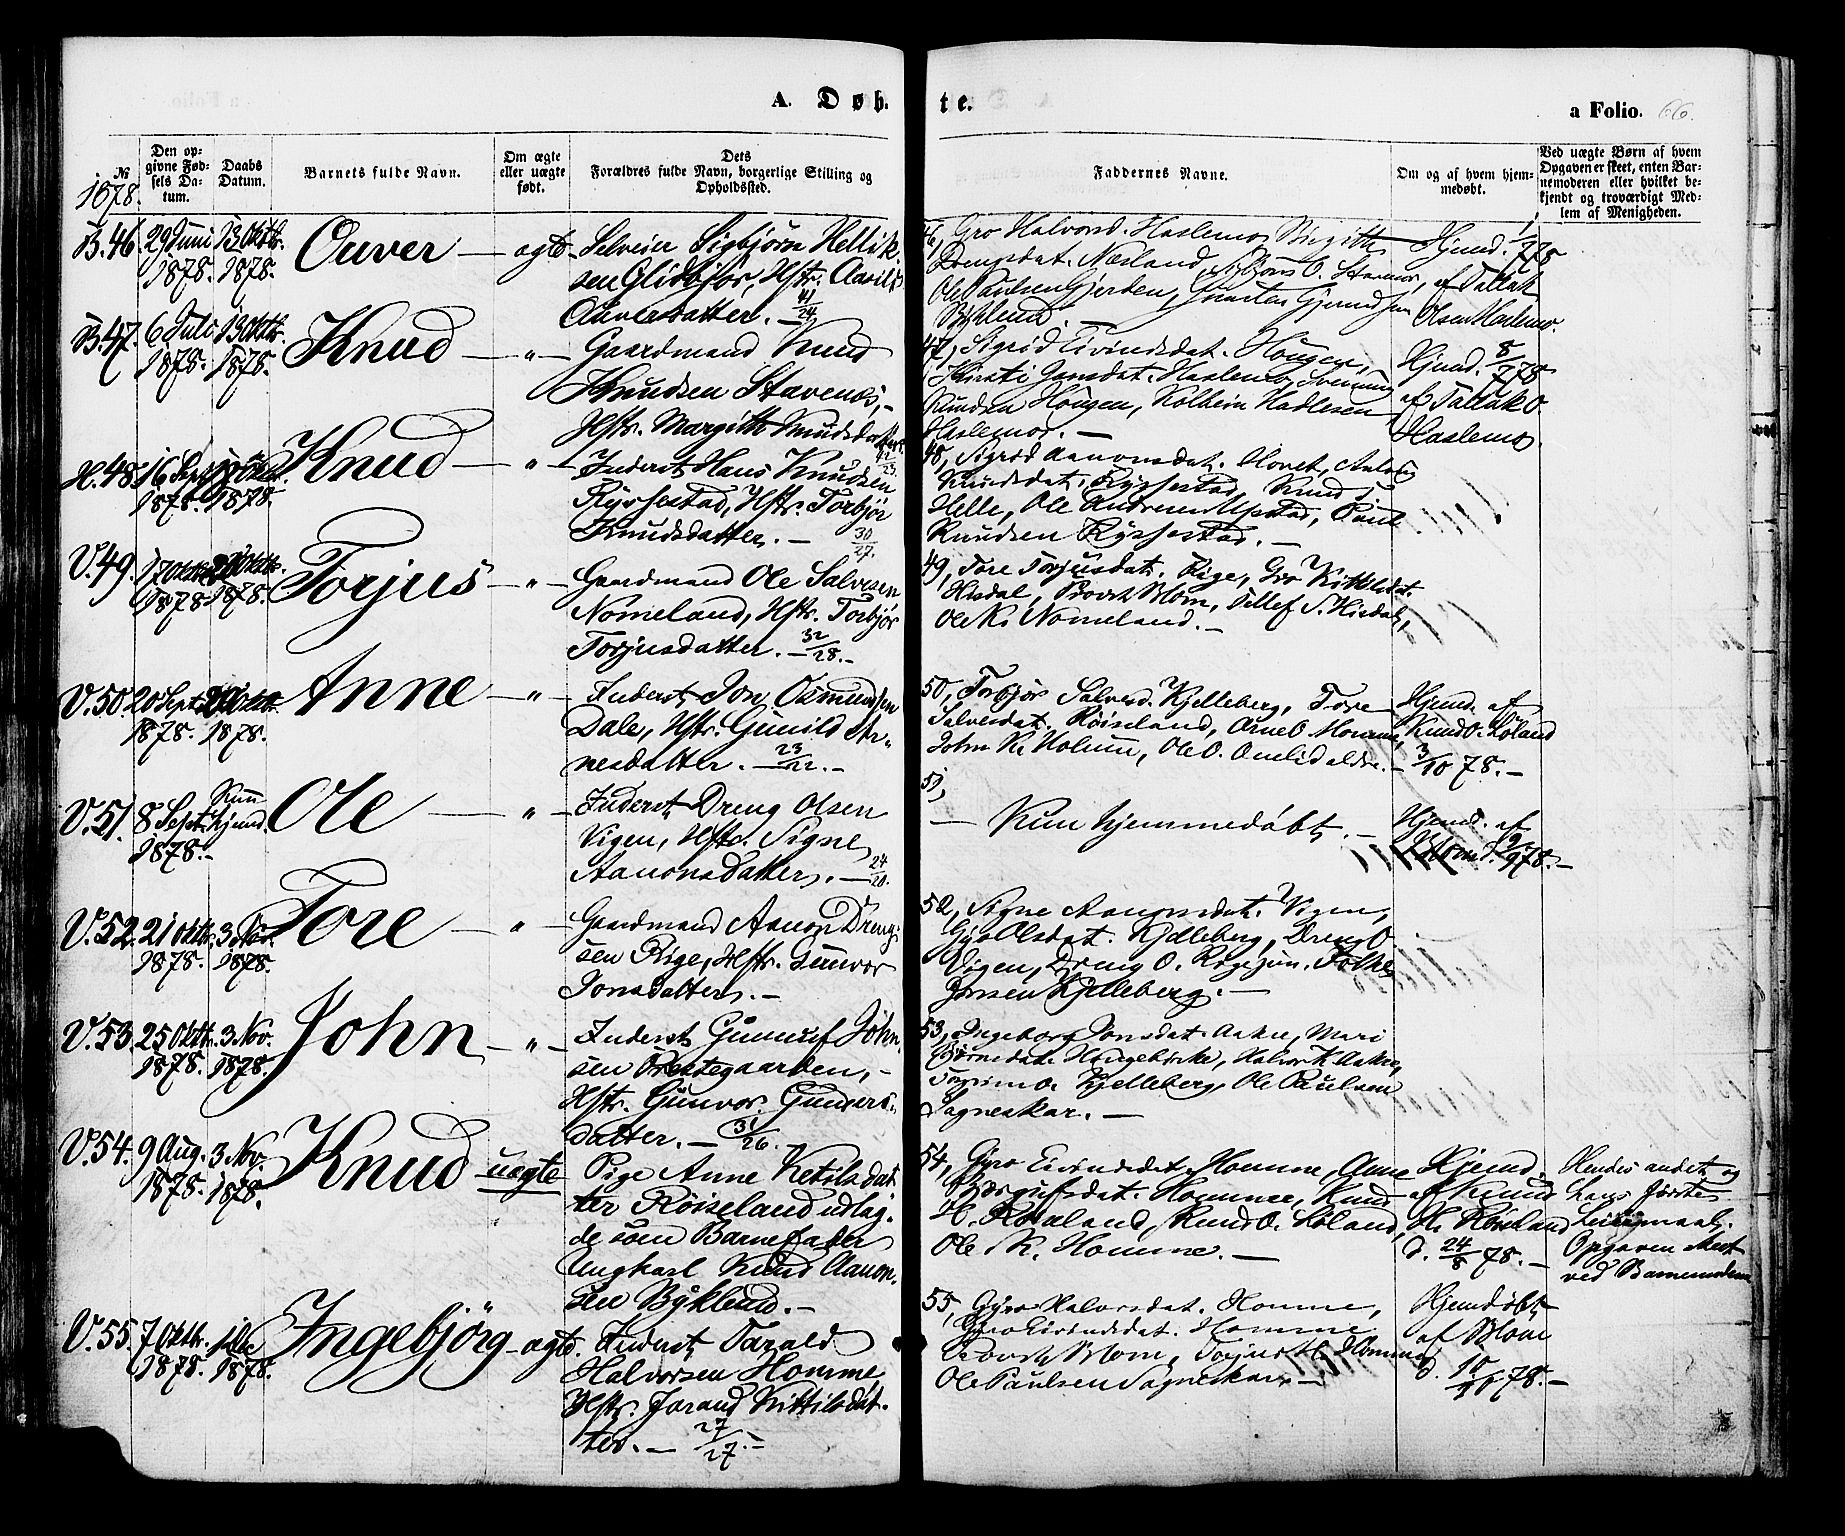 A. Døb
te.
a Folio. 66.
№
1878.
Den opgivne Fødsels Datum.
Daabs Datum.
Barnets fulde Navn.
Om ægte eller uægte født.
Dets Forældres fulde Navn, borgerlige Stilling og Opholdssted.
Faddernes Navne.
Om og af hvem hjemmedøbt.
Ved uægte Børn af hvem Opgaven er skeet, enten Barnemoderen eller hvilket bekjendt og troværdigt Medlem af Menigheden.
B. 46. 29 Juni 1878. 13 Oktbr. 1878.
Ouver — ægte
Selveier Sigbjørn Hellik-
sen Glidbjør, Hstr. Aasil
Ouversdatter. — 41/24.
46, Gro Halvorsd. Haslemo, Birgith
Drengsdat. Næsland, O. Stamo,
Ole Paulsen Gjerden, Gjermundsen
Hjemd. 1/7 78
af Tallak
Olsen Haslemo.
B. 47. 6 Juli 1878. 13 Oktbr. 1878.
Knud — " —
Gaardmand Knud
Knudsen Stavenæs, –
Hstr. Margith Knudsdatter.
47, Sigrid Eivindsdat. Hougen,
Kirsti Jonsdat. Haslemo,
Knudsen Hougen, Kolbein Hadlesen
Haslemo. —
Hjemd. 8/7 78
af Tallak O.
Haslemo.
H. 48. 16 Sept. 1878. Oktbr. 1878.
Knud — " —
Inderst Hans Knudsen
Rysstad, Hstr. Torbjør
Knudsdatter. — 30/27.
48, Sigrid Aanonsdat. Hovet,
Knudsdat. Rysstad, Knud
Helle, Ole Andersen Upstad, Paul
Knudsen Rysstad. —
V. 49. 17 Oktbr. 1878. 20 Oktbr. 1878.
Torjus — " —
Gaardmand Ole Salvesen
Nomeland, Hstr. Torbjør
Torjusdatter. — 32/28. –
49, Tore Torjusdat. Rige, Gro Kittelsdat.
Hisdal, Provst Blom, Tellef S. Hisdal,
Ole K. Nomeland. –
V. 50. 20 Sept. 1878. 20 Oktbr. 1878.
Anne — " —
Inderst Jon Osmundsen
Dale, Hstr. Gunild Ar-
nesdatter. — 23/22. –
50, Torbjør Salvesd. Kjelleberg, Tore
Salvesdat. Røiseland, Arne O. Homme,
John K. Holum, Ole O. Omlid ældre. –
Hjemd. af
Knud O. Løland
3/10 78. –
V. 51. 8 Sept. 1878. – Kun hjemd.
Ole — " —
Inderst Dreng Olsen
Vigen, Hstr. Signe
Aanonsdatter. — 24/20.
51,
— Kun hjemmedøbt. –
Hjemd. af
Blom d. 9/9 78. –
V. 52. 21 Oktbr. 1878. 3 Nov. 1878.
Tore — " —
Gaardmand Aanon Dreng-
sen Rige, Hstr. Gunvor
Jonsdatter. –
52, Signe Aanonsdat. Vigen,
Gyro Olsdat. Kjelleberg, Dreng O.
Vigen, Dreng O. Rige jun. Folke
Jonsen Kjelleberg. —
V. 53. 25 Oktbr. 1878. 3 Nov. 1878.
John — " —
Inderst Gunnuf John-
sen Præstegaarden, –
Hstr. Gunvor Gunders-
datter. — 31/26.
53, Ingeborg Jonsdat. Aakre, Mari
Bjørnsdat. Haugebirke, Halvor K. Aakre,
Torgrim O. Kjelleberg, Ole Paulsen
Sagneskar. —
V. 54. 9 Aug. 1878. 3 Nov. 1878.
Knud uægte
Pige Anne Ketilsdat-
ter Røiseland udlag-
de som Barnefader
Ungkarl Knud Aanon-
sen Byklund. –
54, Gyro Eivindsdat. Homme, Anne
Torgufsdat. Homme, Knud
H. Røiseland, Knud O. Løland,
Ole K. Homme. —
Hjemd.
af Knud
H. Røiseland
d. 24/8 78. —
Hendes andet og
hans første
Leiermaal.
Opgaven skeet
ved Barnemoderen
V. 55. 7 Oktbr. 1878. 1 Dec 1878.
Ingebjörg – ægte.
Inderst Tarald
Halvorsen Homme
Hstr. Jorand Kittilsdat-
ter. — 27/27. –
55, Gyro Halvorsdat. Homme,
Gyro Eivindsdat. Homme,
Provst Blom, Torjus H. Homme,
Ole Paulsen Sagneskar. —
Hjemdøbt
af Blom
d. 10/11 78. –